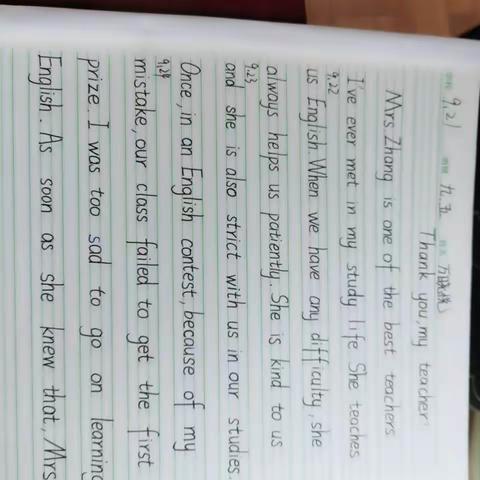 9.21 九.五
Thank you, my teacher
Mrs Zhang is one of the best teachers
I've ever met in my study life She teaches
9.22
us English. When we have any difficulty, she
always helps us patiently. She is kind to us
9.23
and she is also strict with us in our studies.
Once, in an English contest, because of my
9.24
mistake, our class failed to get the first
prize. I was too sad to go on learning
English. As soon as she knew that, Mrs